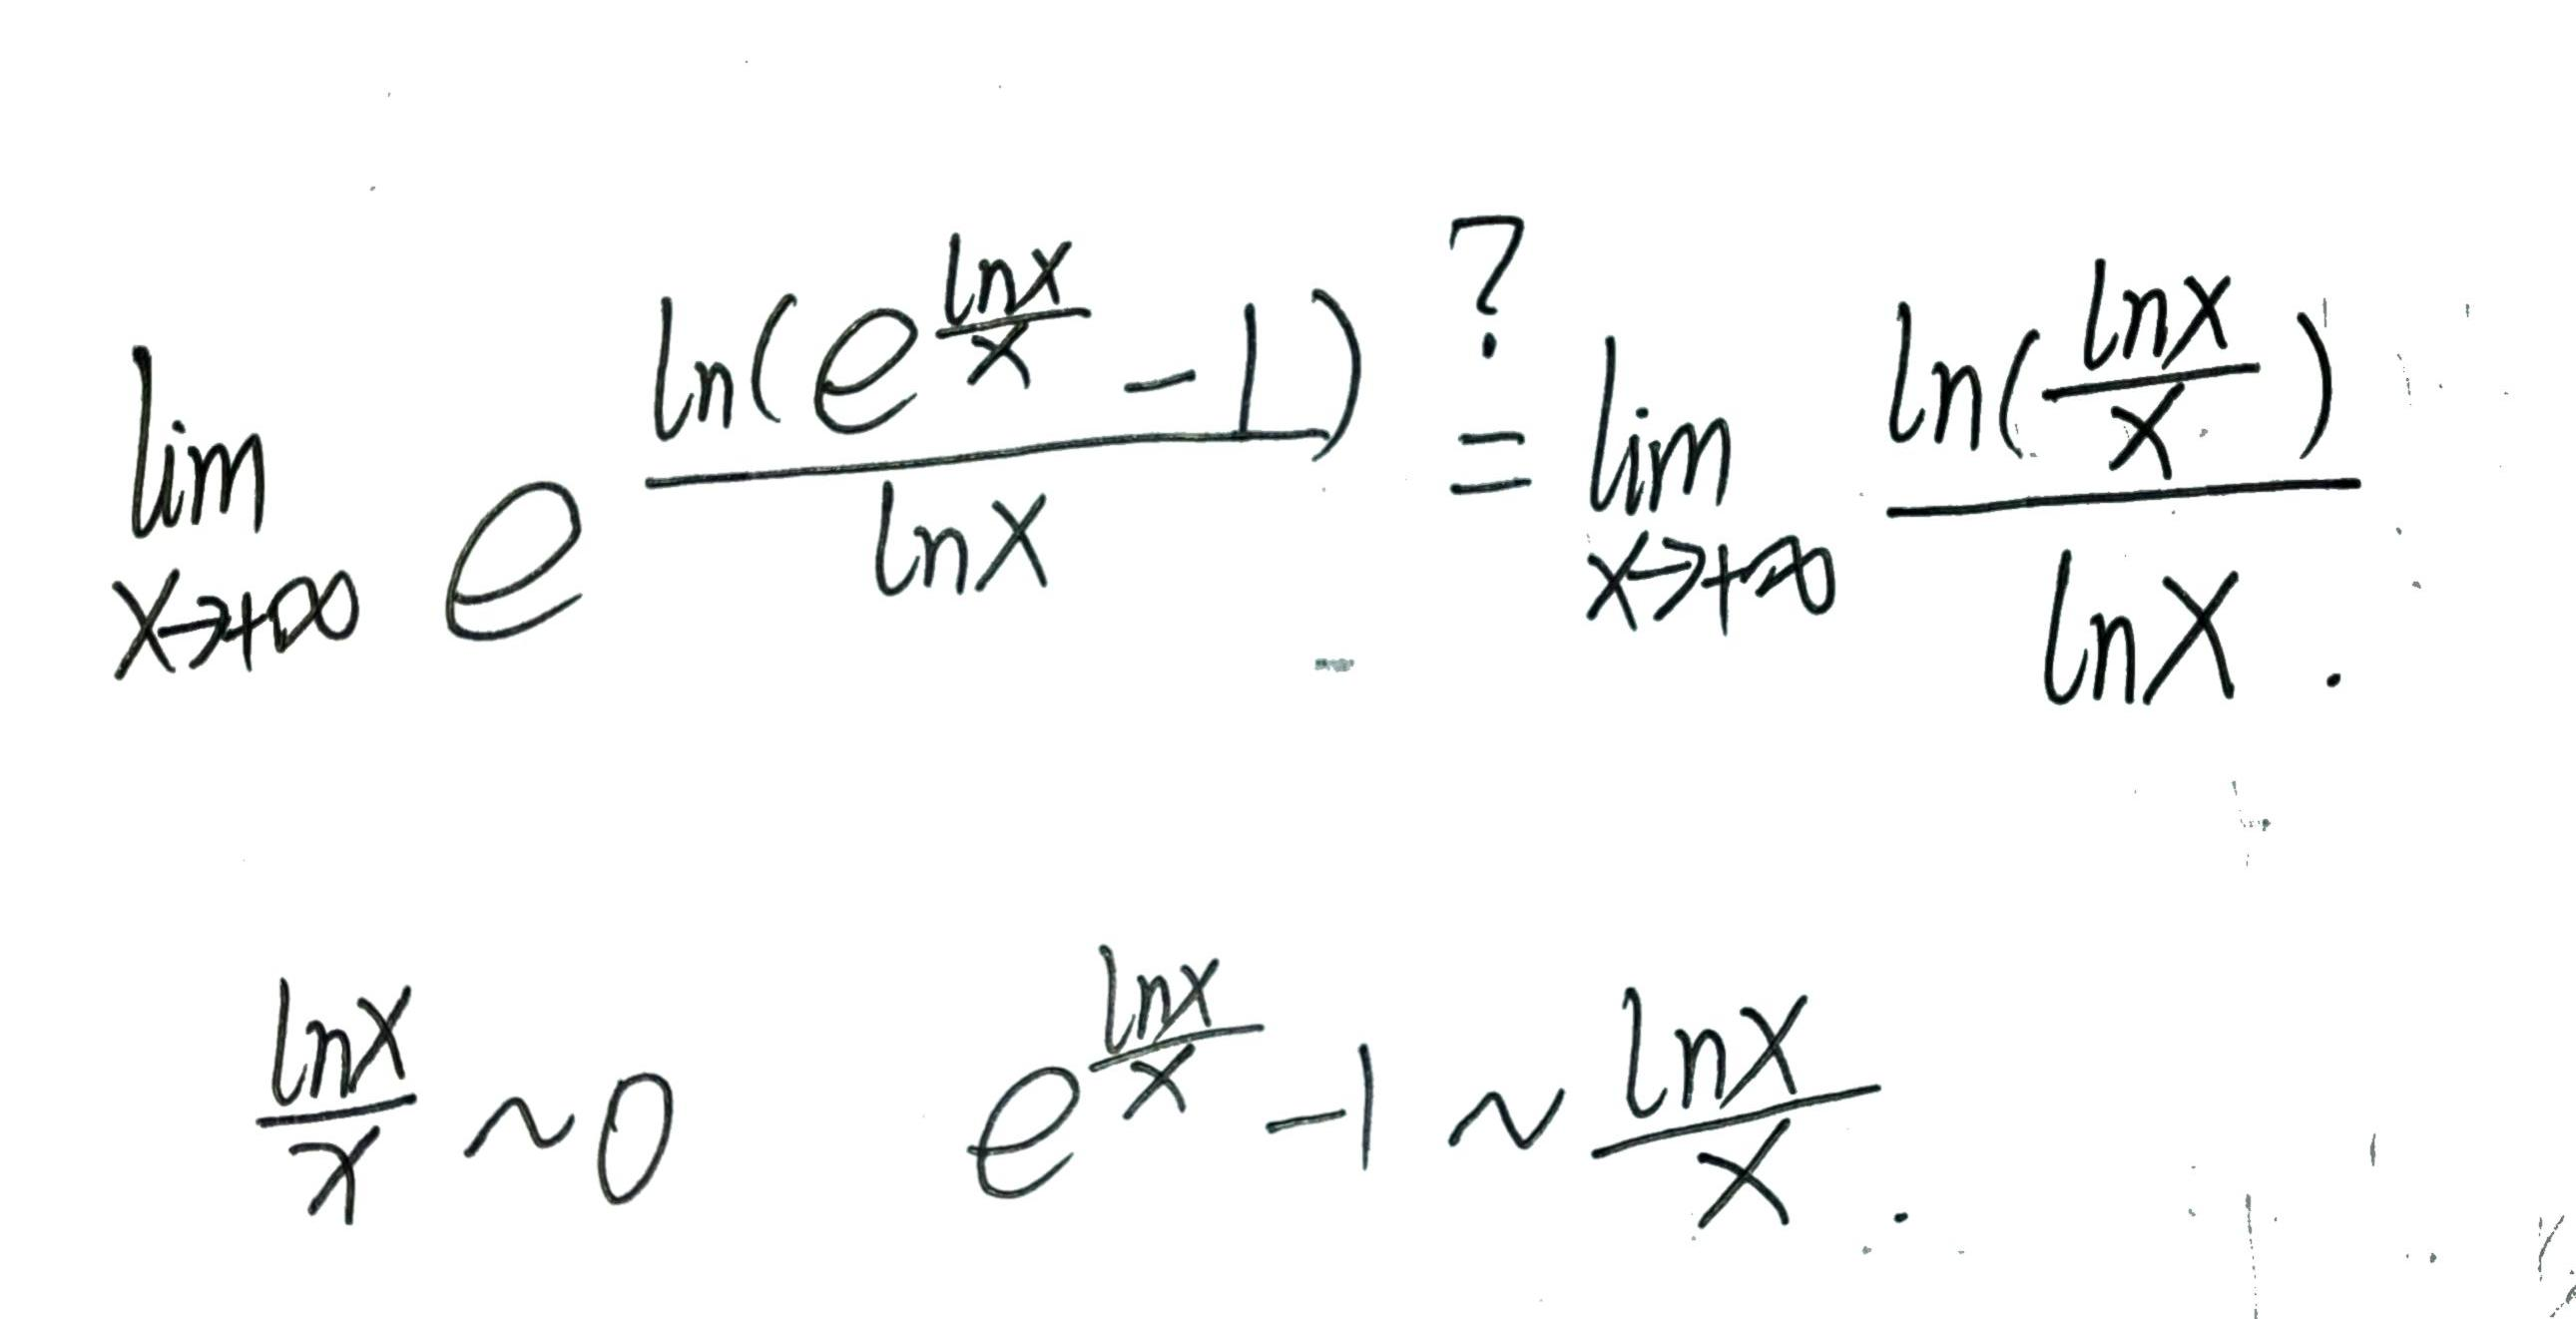 $\lim_{x \to +\infty} e^{\frac{\ln(e^{\frac{\ln x}{x}} - 1)}{\ln x}} \overset{?}{=} \lim_{x \to +\infty} \frac{\ln(\frac{\ln x}{x})}{\ln x}.$
$\frac{\ln x}{x} \sim 0 \quad e^{\frac{\ln x}{x}} - 1 \sim \frac{\ln x}{x}.$